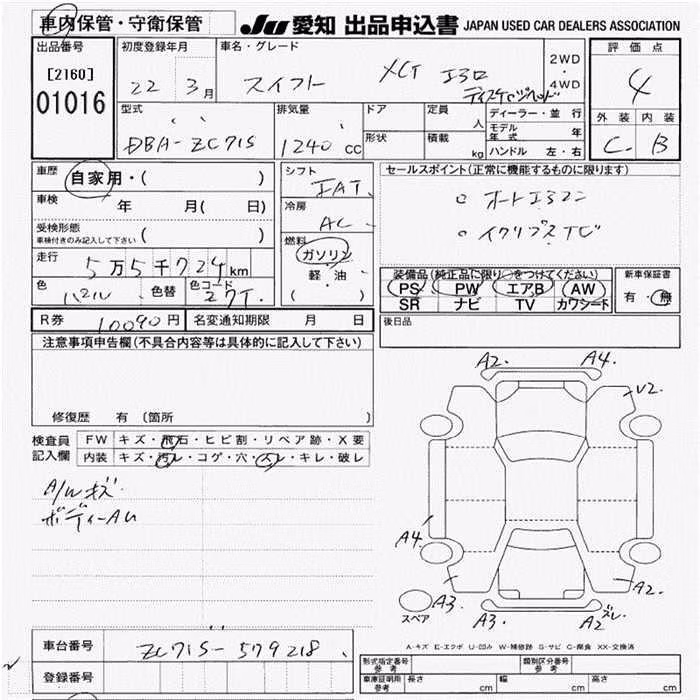 車内保管・守衛保管 JU 愛知 出品申込書 JAPAN USED CAR DEALERS ASSOCIATION
出品番号 初度登録年月 車名・グレード 評価点
[2160] 22 3月 スイフト XG 2WD ・ 4WD 4
01016
型式 排気量 ドア 定員 人 ディーラー・並行 外装 内装
DBA-ZC71S 1240cc 形状 積載 kg モデル年式 年 C B
ハンドル 左・右
車歴 自家用・( ) シフト セールスポイント(正常に機能するものに限ります)
車検 年 月( 日) 冷房 AC
受検形態 ( )
車検付きのみ記入して下さい
燃料 ガソリン
軽・油
( )
走行 5万5千724km
色 パール 色替 色コード Z7T
装備品(純正品に限り○をつけてください) 新車保証書
PS PW エアB AW 有・無
SR ナビ TV カワシート
R券 10090円 名変通知期限 月 日 後日品
注意事項申告欄(不具合内容等は具体的に記入して下さい)
修復歴 有 (箇所 )
検査員 FW キズ・飛石・ヒビ割・リペア跡・X要
記入欄 内装 キズ・汚レ・コゲ・穴・スレ・キレ・破レ
A/Wキズ
A2. A4.
U2.
A4.
A3. A3. A2 ズレ. A2.
スペア
A-キズ E-エクボ U-凹み W-補修跡 S-サビ C-腐食 XX-交換済
車台番号 ZC71S-579218
登録番号
形式指定番号 参考 類別区分番号 参考
車庫証明用 参考 長さ cm 幅 cm 高さ cm